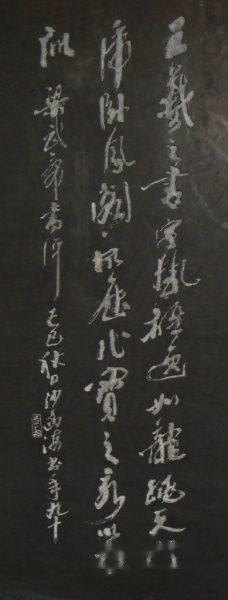 王羲之書字勢雄逸如龍跳天
虎臥鳳閣故歷代寶之永以
訓 梁武帝書評 己巳秋日沙孟海書年九十